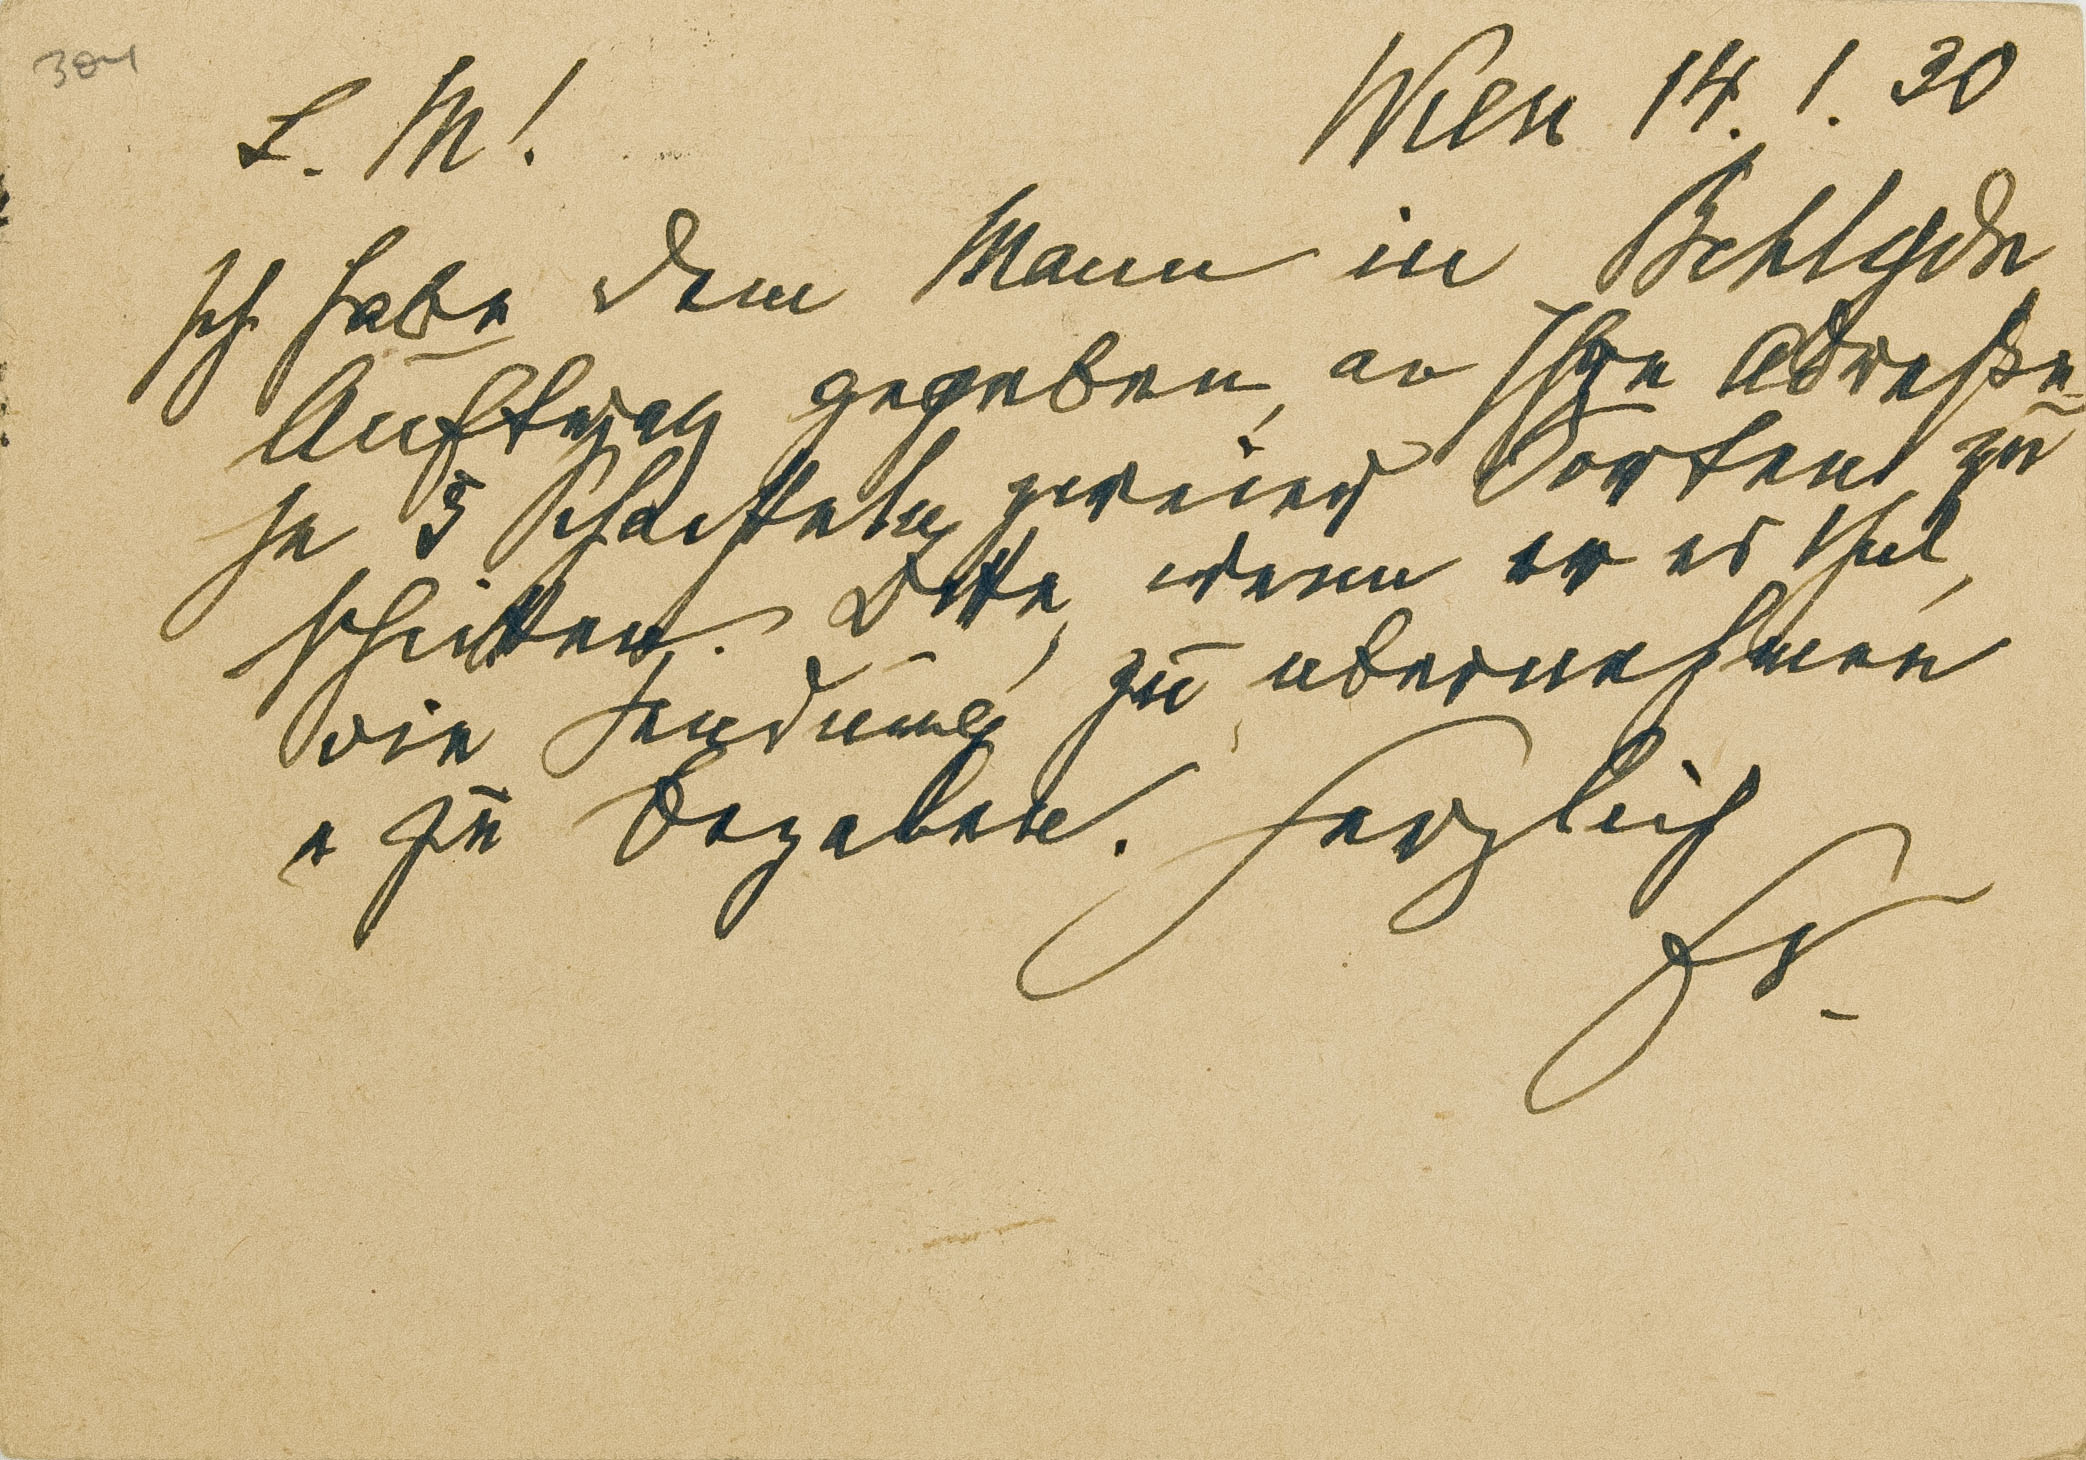 304
L. M!
Wien 14. 1. 30
Ich habe dem Mann in Bchtgdn
Auftrag gegeben, an Ihre Adresse
je 5 Schachteln zweier Sorten zu
schicken. Bitte, wenn er es thut,
die Sendung zu übernehmen
u zu bezalen. Herzlich
Fr.